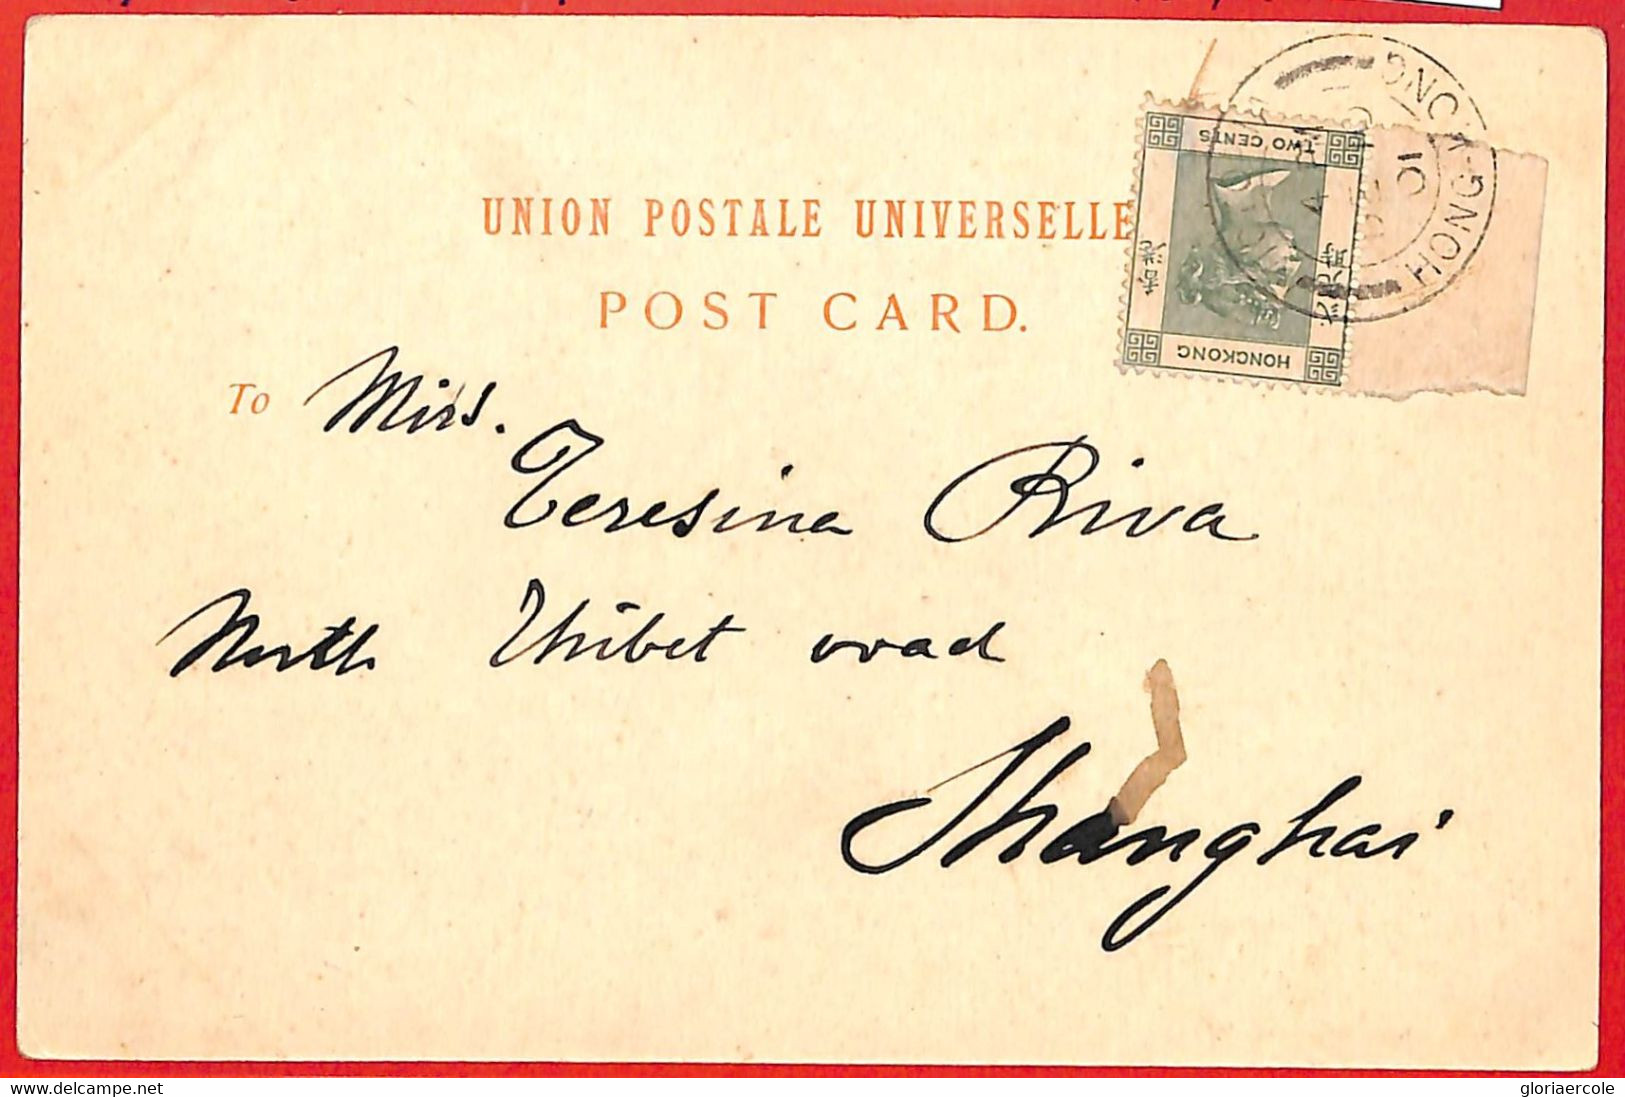 UNION POSTALE UNIVERSELLE
POST CARD.
To Miss.
Teresina Riva
North Thibet road
Shanghai
HONGKONG
TWO CENTS
香港
HONG-KONG
www.delcampe.net
gloriaercole